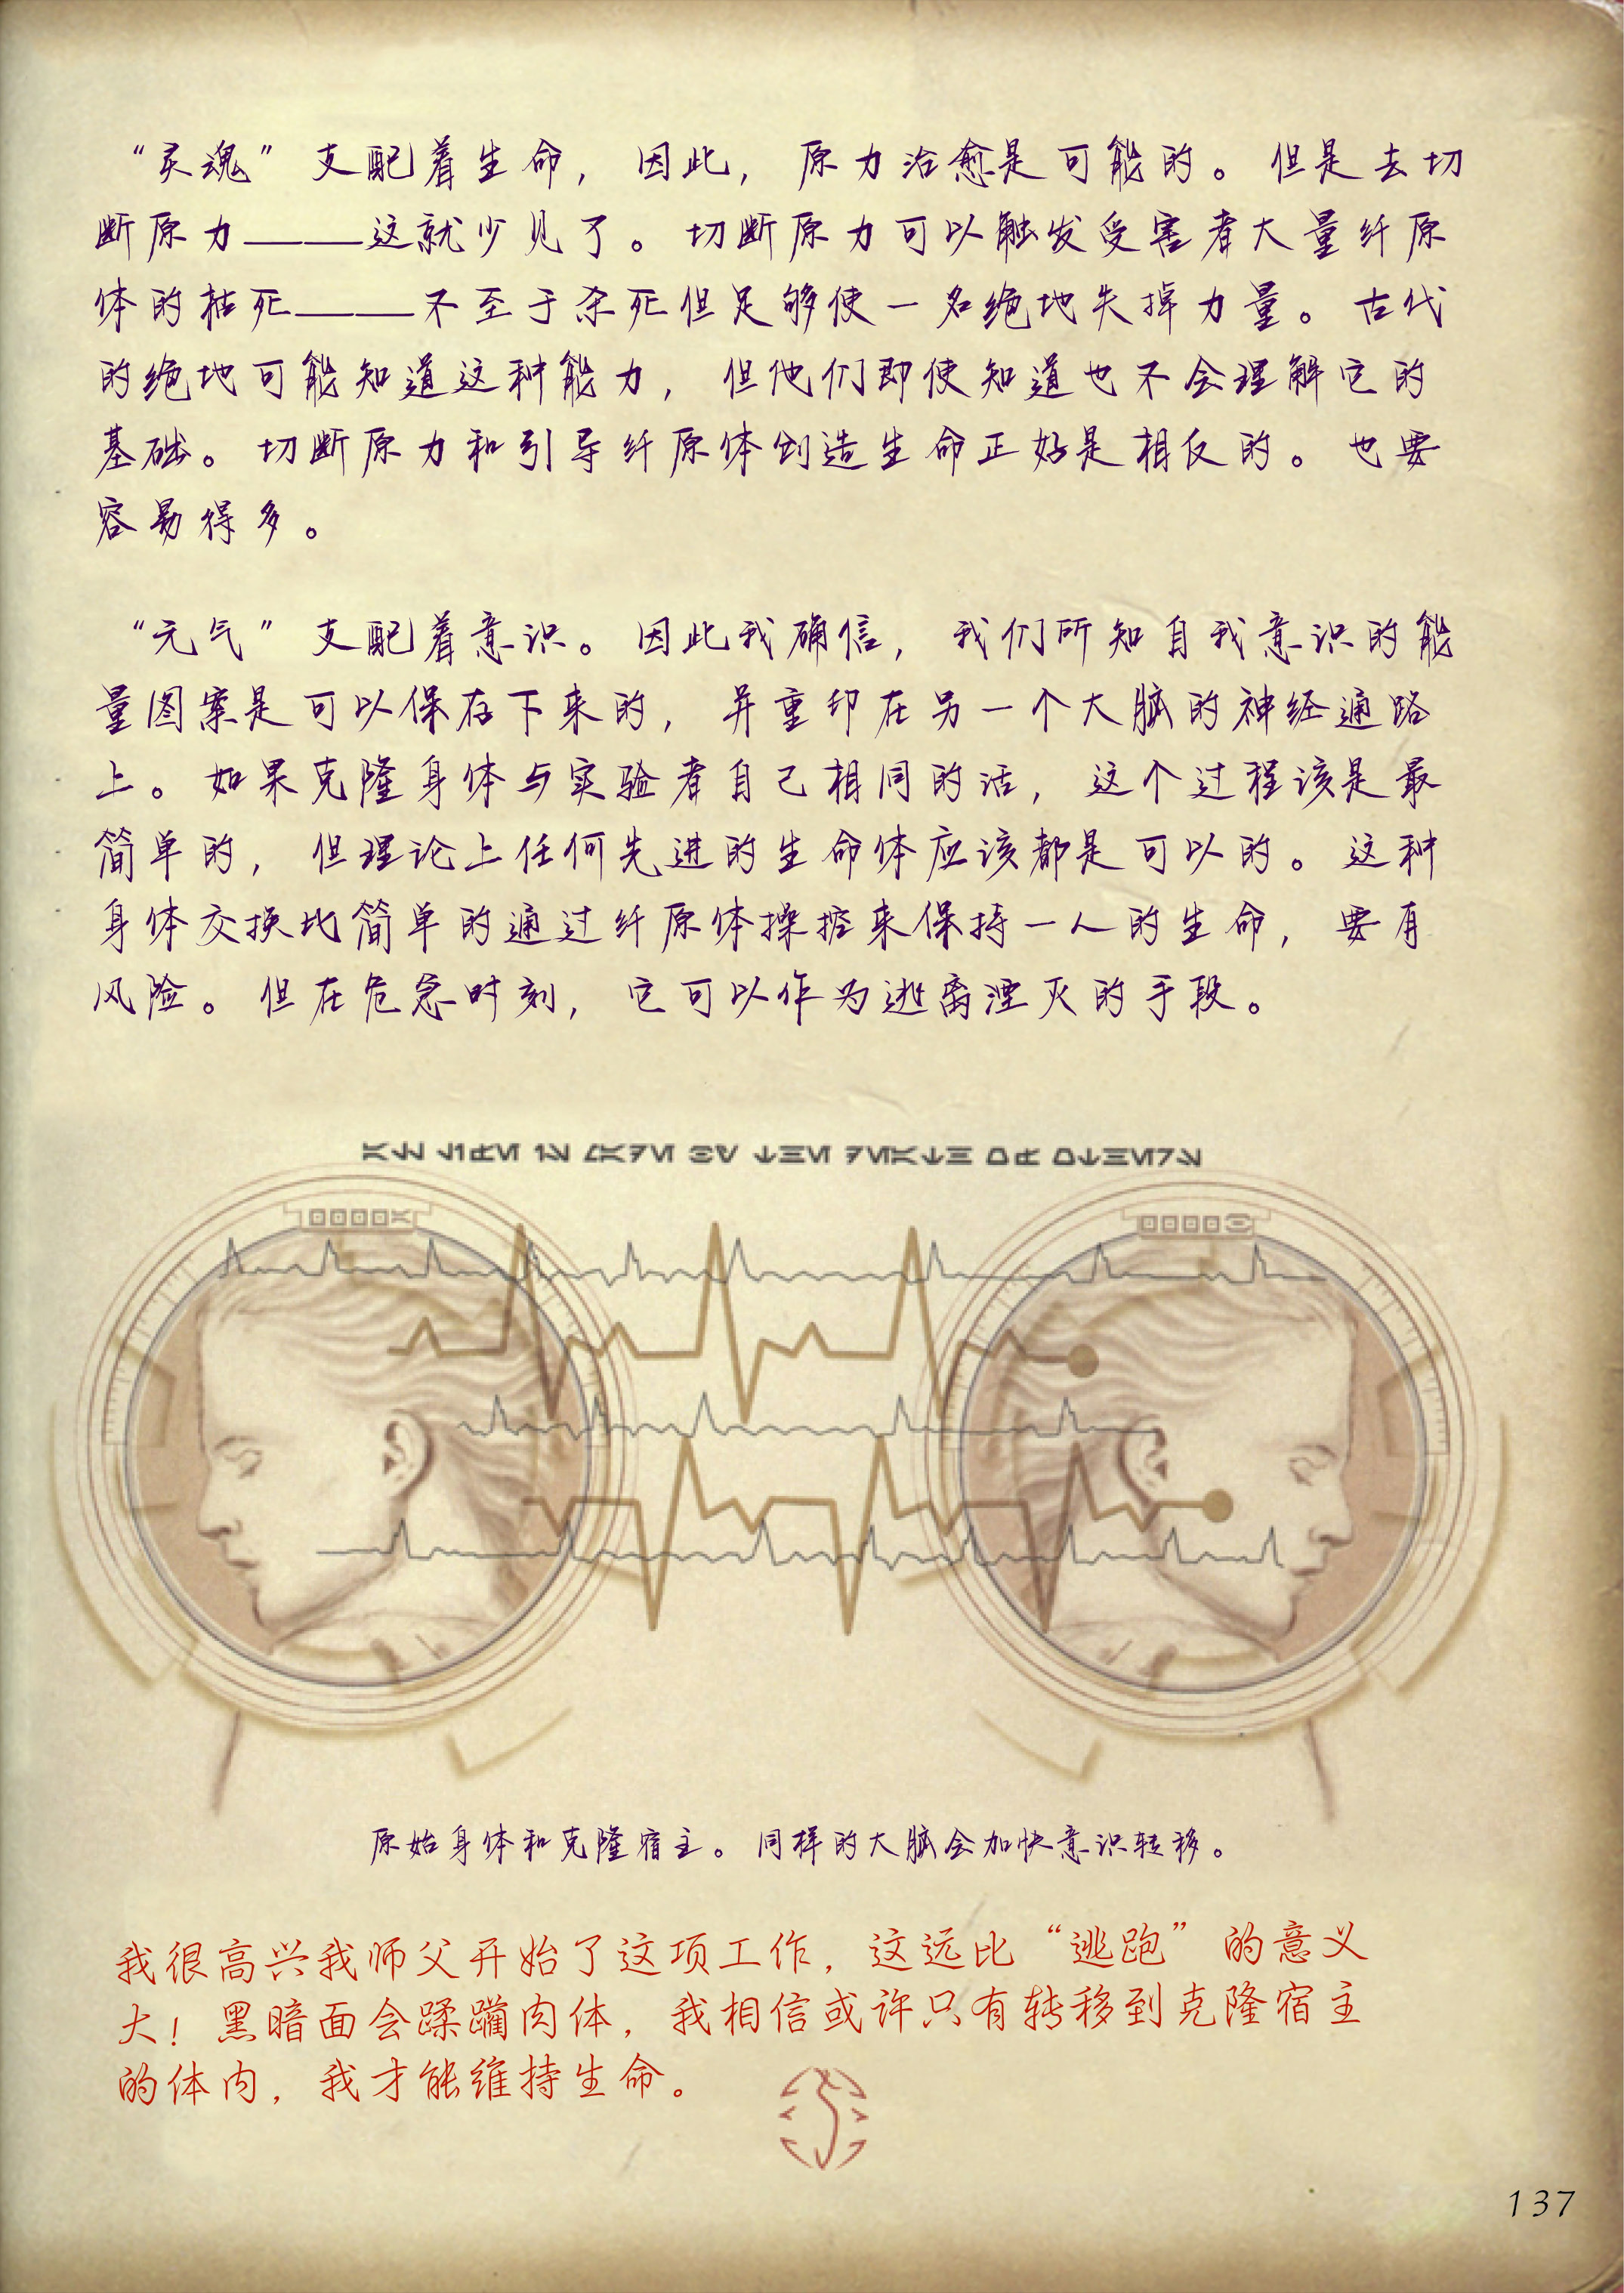 “灵魂”支配着生命，因此，原力治愈是可能的。但是去切
断原力——这就少见了。切断原力可以触发受害者大量纤原
体的枯死——不至于杀死但足够使一名绝地失掉力量。古代
的绝地可能知道这种能力，但他们即使知道也不会理解它的
基础。切断原力和引导纤原体创造生命正好是相反的。也要
容易得多。
“元气”支配着意识。因此我确信，我们所知自我意识的能
量图案是可以保存下来的，并重印在另一个大脑的神经通路
上。如果克隆身体与实验者自己相同的话，这个过程该是最
简单的，但理论上任何先进的生命体应该都是可以的。这种
身体交换比简单的通过纤原体操控来保持一人的生命，要有
风险。但在危急时刻，它可以作为逃离湮灭的手段。
原始身体和克隆宿主。同样的大脑会加快意识转移。
我很高兴我师父开始了这项工作，这远比“逃跑”的意义
大！黑暗面会蹂躏肉体，我相信或许只有转移到克隆宿主
的体内，我才能维持生命。
137